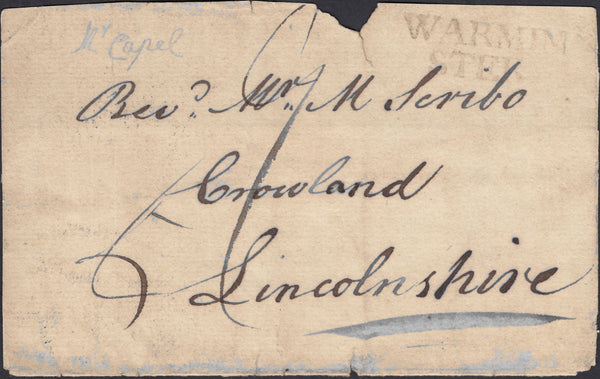 Mr Capel
WARMIN
STER
Revd. Mr. M Scribo
Crowland
Lincolnshire